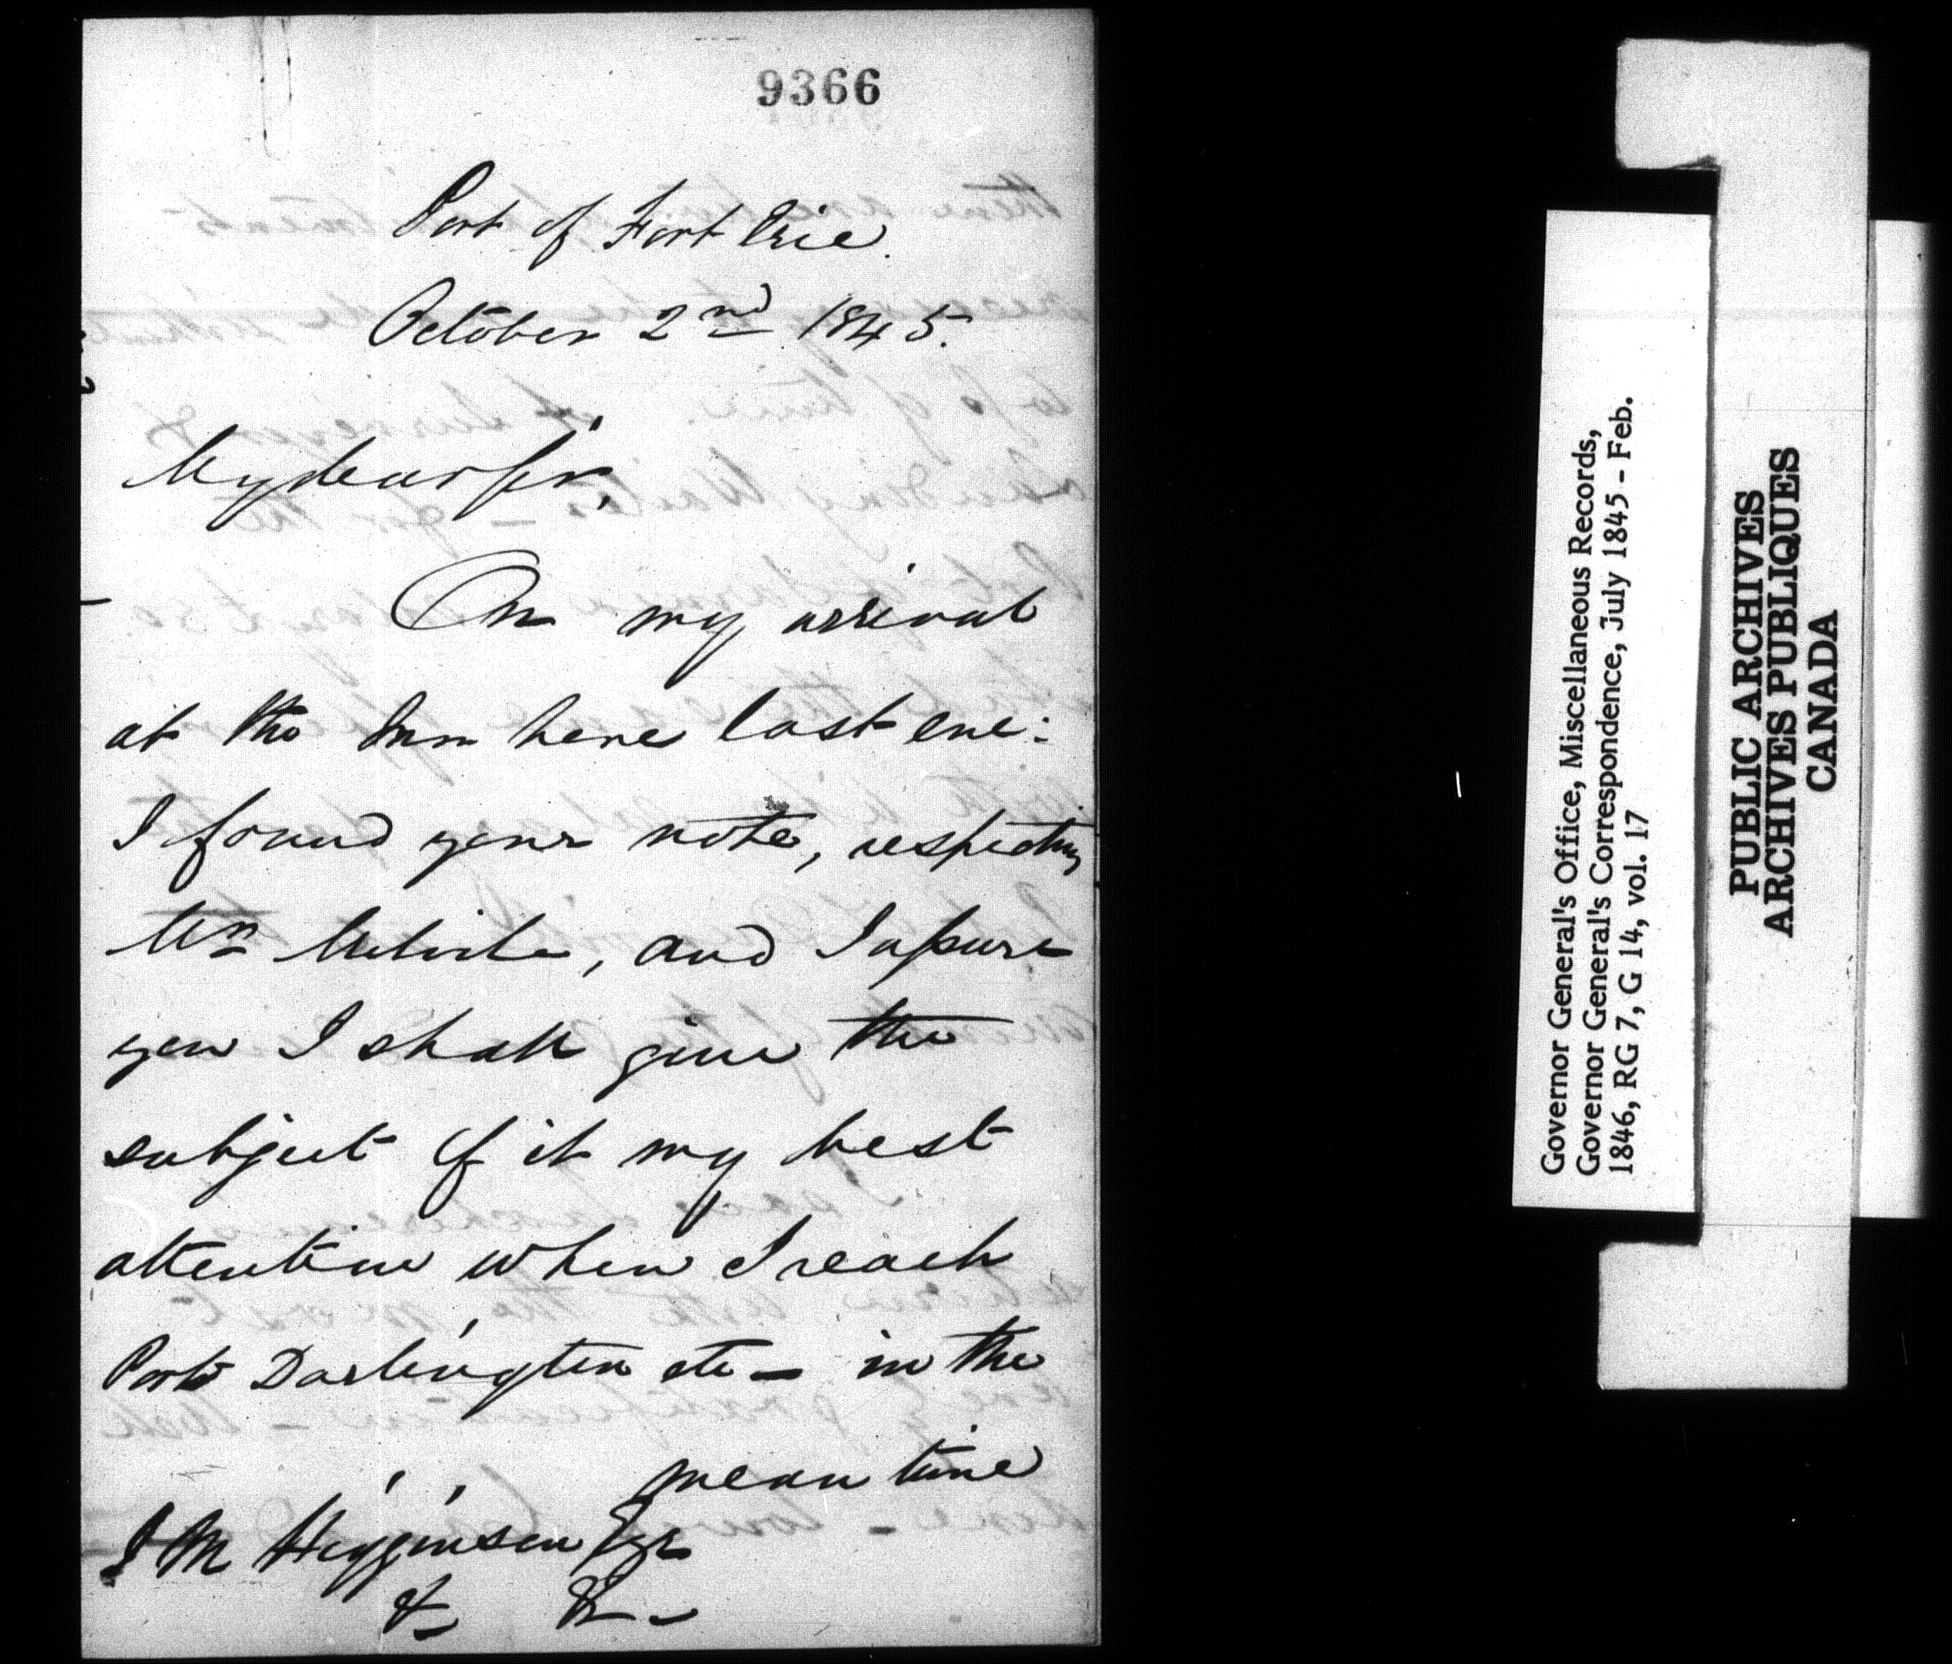 9366
Port of Fort Erie.
October 2nd 1845.
My dear Sir,
On my arrival
at the Inn here last eve:
I found your note, respecting
Mr , and I assure
you I shall give the
subject of it my best
attention when I reach
Port Darlington etc - in the
mean time
J M Higginson Esqr
&c &c -
Governor General's Office, Miscellaneous Records,
Governor General's Correspondence, July 1845 - Feb.
1846, RG 7, G 14, vol. 17
PUBLIC ARCHIVES
ARCHIVES PUBLIQUES
CANADA